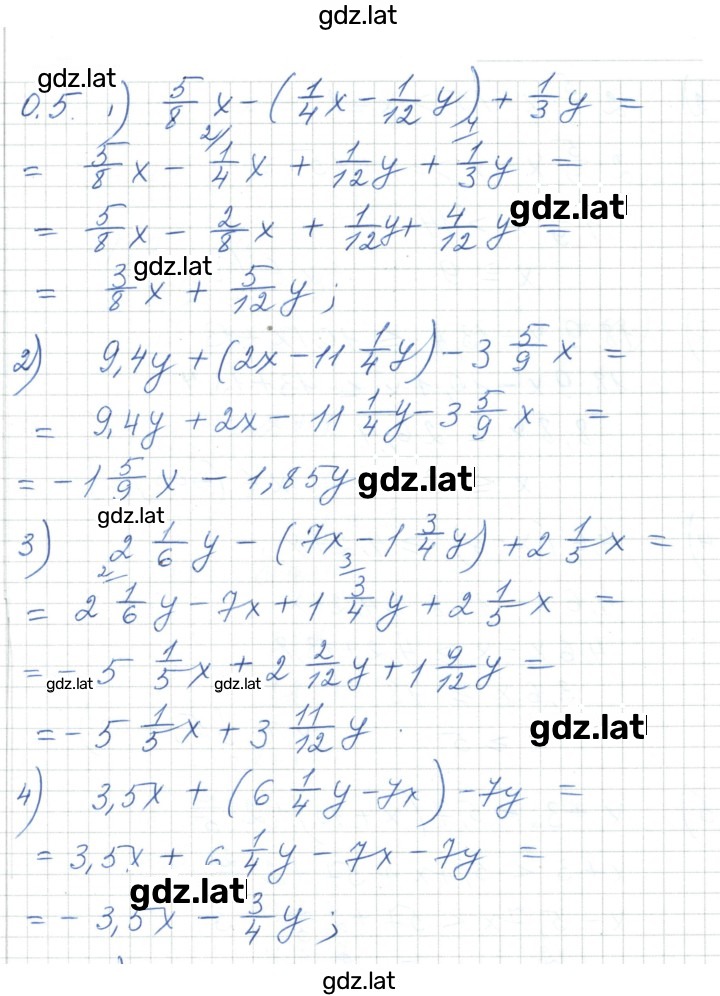 gdz.lat
gdz.lat
0.5. 1) 5/8 x - (1/4 x - 1/12 y) + 1/3 y =
= 5/8 x - 1/4 x + 1/12 y + 1/3 y =
gdz.lat
= 5/8 x - 2/8 x + 1/12 y + 4/12 y =
gdz.lat
= 3/8 x + 5/12 y ;
2) 9,4y + (2x - 11 1/4 y) - 3 5/9 x =
= 9,4y + 2x - 11 1/4 y - 3 5/9 x =
= - 1 5/9 x - 1,85y gdz.lat
gdz.lat
3) 2 1/6 y - (7x - 1 3/4 y) + 2 1/5 x =
= 2 1/6 y - 7x + 1 3/4 y + 2 1/5 x =
= - 5 1/5 x + 2 2/12 y + 1 9/12 y =
gdz.lat gdz.lat
= - 5 1/5 x + 3 11/12 y gdz.lat
4) 3,5x + (6 1/4 y - 7x) - 7y =
= 3,5x + 6 1/4 y - 7x - 7y =
gdz.lat
= - 3,5x - 3/4 y ;
gdz.lat